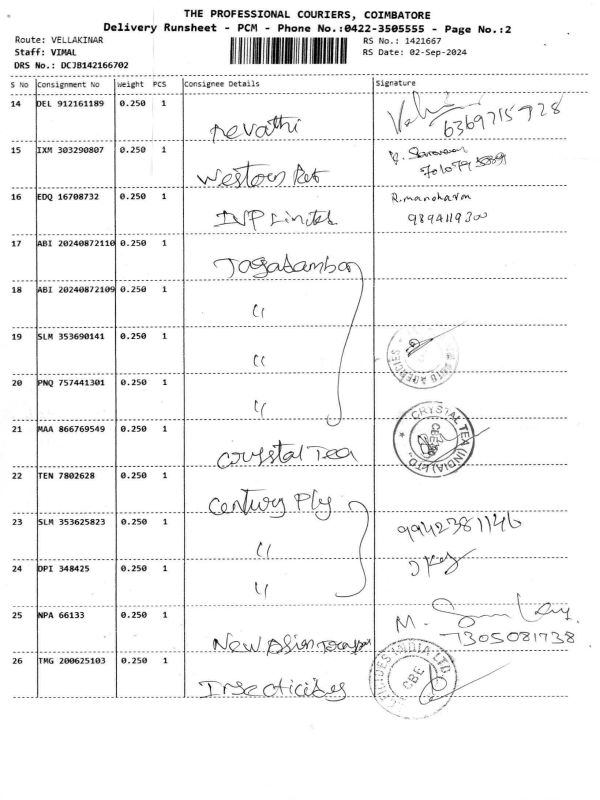 THE PROFESSIONAL COURIERS, COIMBATORE
Delivery Runsheet - PCM - Phone No.:0422-3505555 - Page No.:2
Route: VELLAKINAR RS No.: 1421667
Staff: VIMAL RS Date: 02-Sep-2024
DRS No.: DCJB142166702
S No Consignment No Weight PCS Consignee Details Signature
14 DEL 912161189 0.250 1 Revathi 6369715728
15 IXM 303290807 0.250 1 Western
16 EDQ 16708732 0.250 1 R.manoharan
9894119300
17 ABI 20240872110 0.250 1 Jagadamba
18 ABI 20240872109 0.250 1 "
19 SLM 353690141 0.250 1 " AGENCIES
20 PNQ 757441301 0.250 1 "
21 MAA 866769549 0.250 1 Crystal Tea CRYSTAL TEA (INDIA) LTD.
22 TEN 7802628 0.250 1 Century Ply
23 SLM 353625823 0.250 1 " 9942381146
24 DPI 348425 0.250 1 "
25 NPA 66133 0.250 1 New Asian M.
7305081738
26 TMG 200625103 0.250 1 Insecticides INDIA LTD
CBE